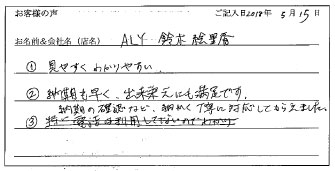 お客様の声
ご記入日2018年 5月15日
お名前&会社名(店名) ALY 鈴木絵里香
① 見やすくわかりやすい
② 納期も早く、出来栄えにも満足です。
納期の確認など、細かく丁寧に対応してもらえました。
③ 特に電話は利用してないのでわかり